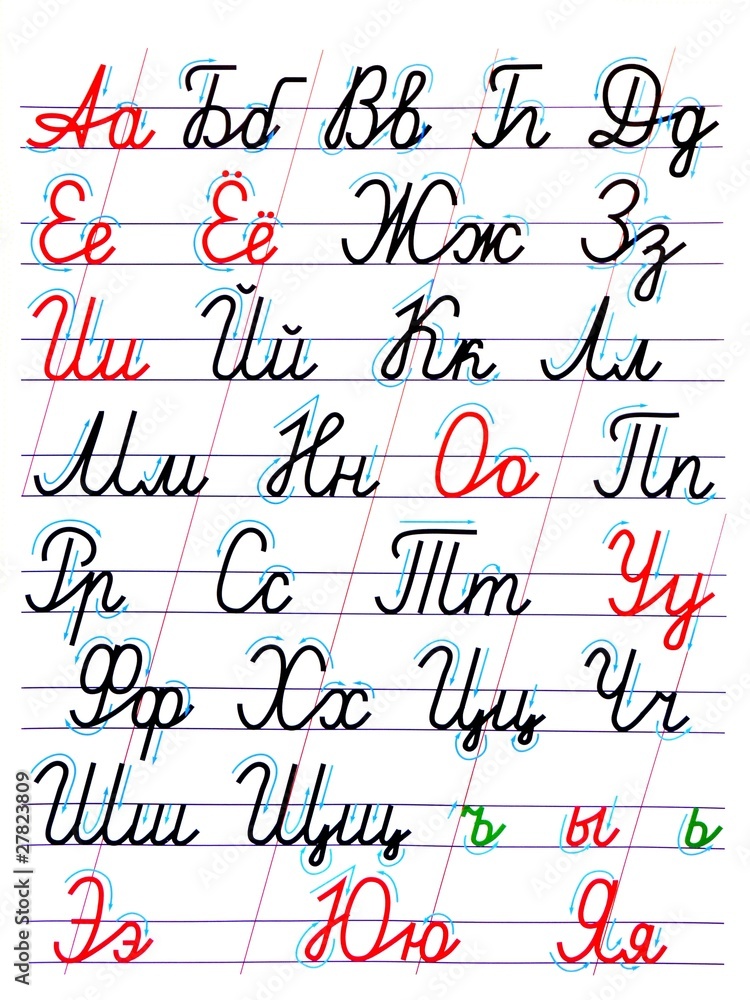 Аа Бб Вв Гг Дд
Ее Ёё Жж Зз
Ии Йй Кк Лл
Мм Нн Оо Пп
Рр Сс Тт Уу
Фф Хх Цц Чч
Шш Щщ ъ ы ь
Ээ Юю Яя
Adobe Stock | #27823809